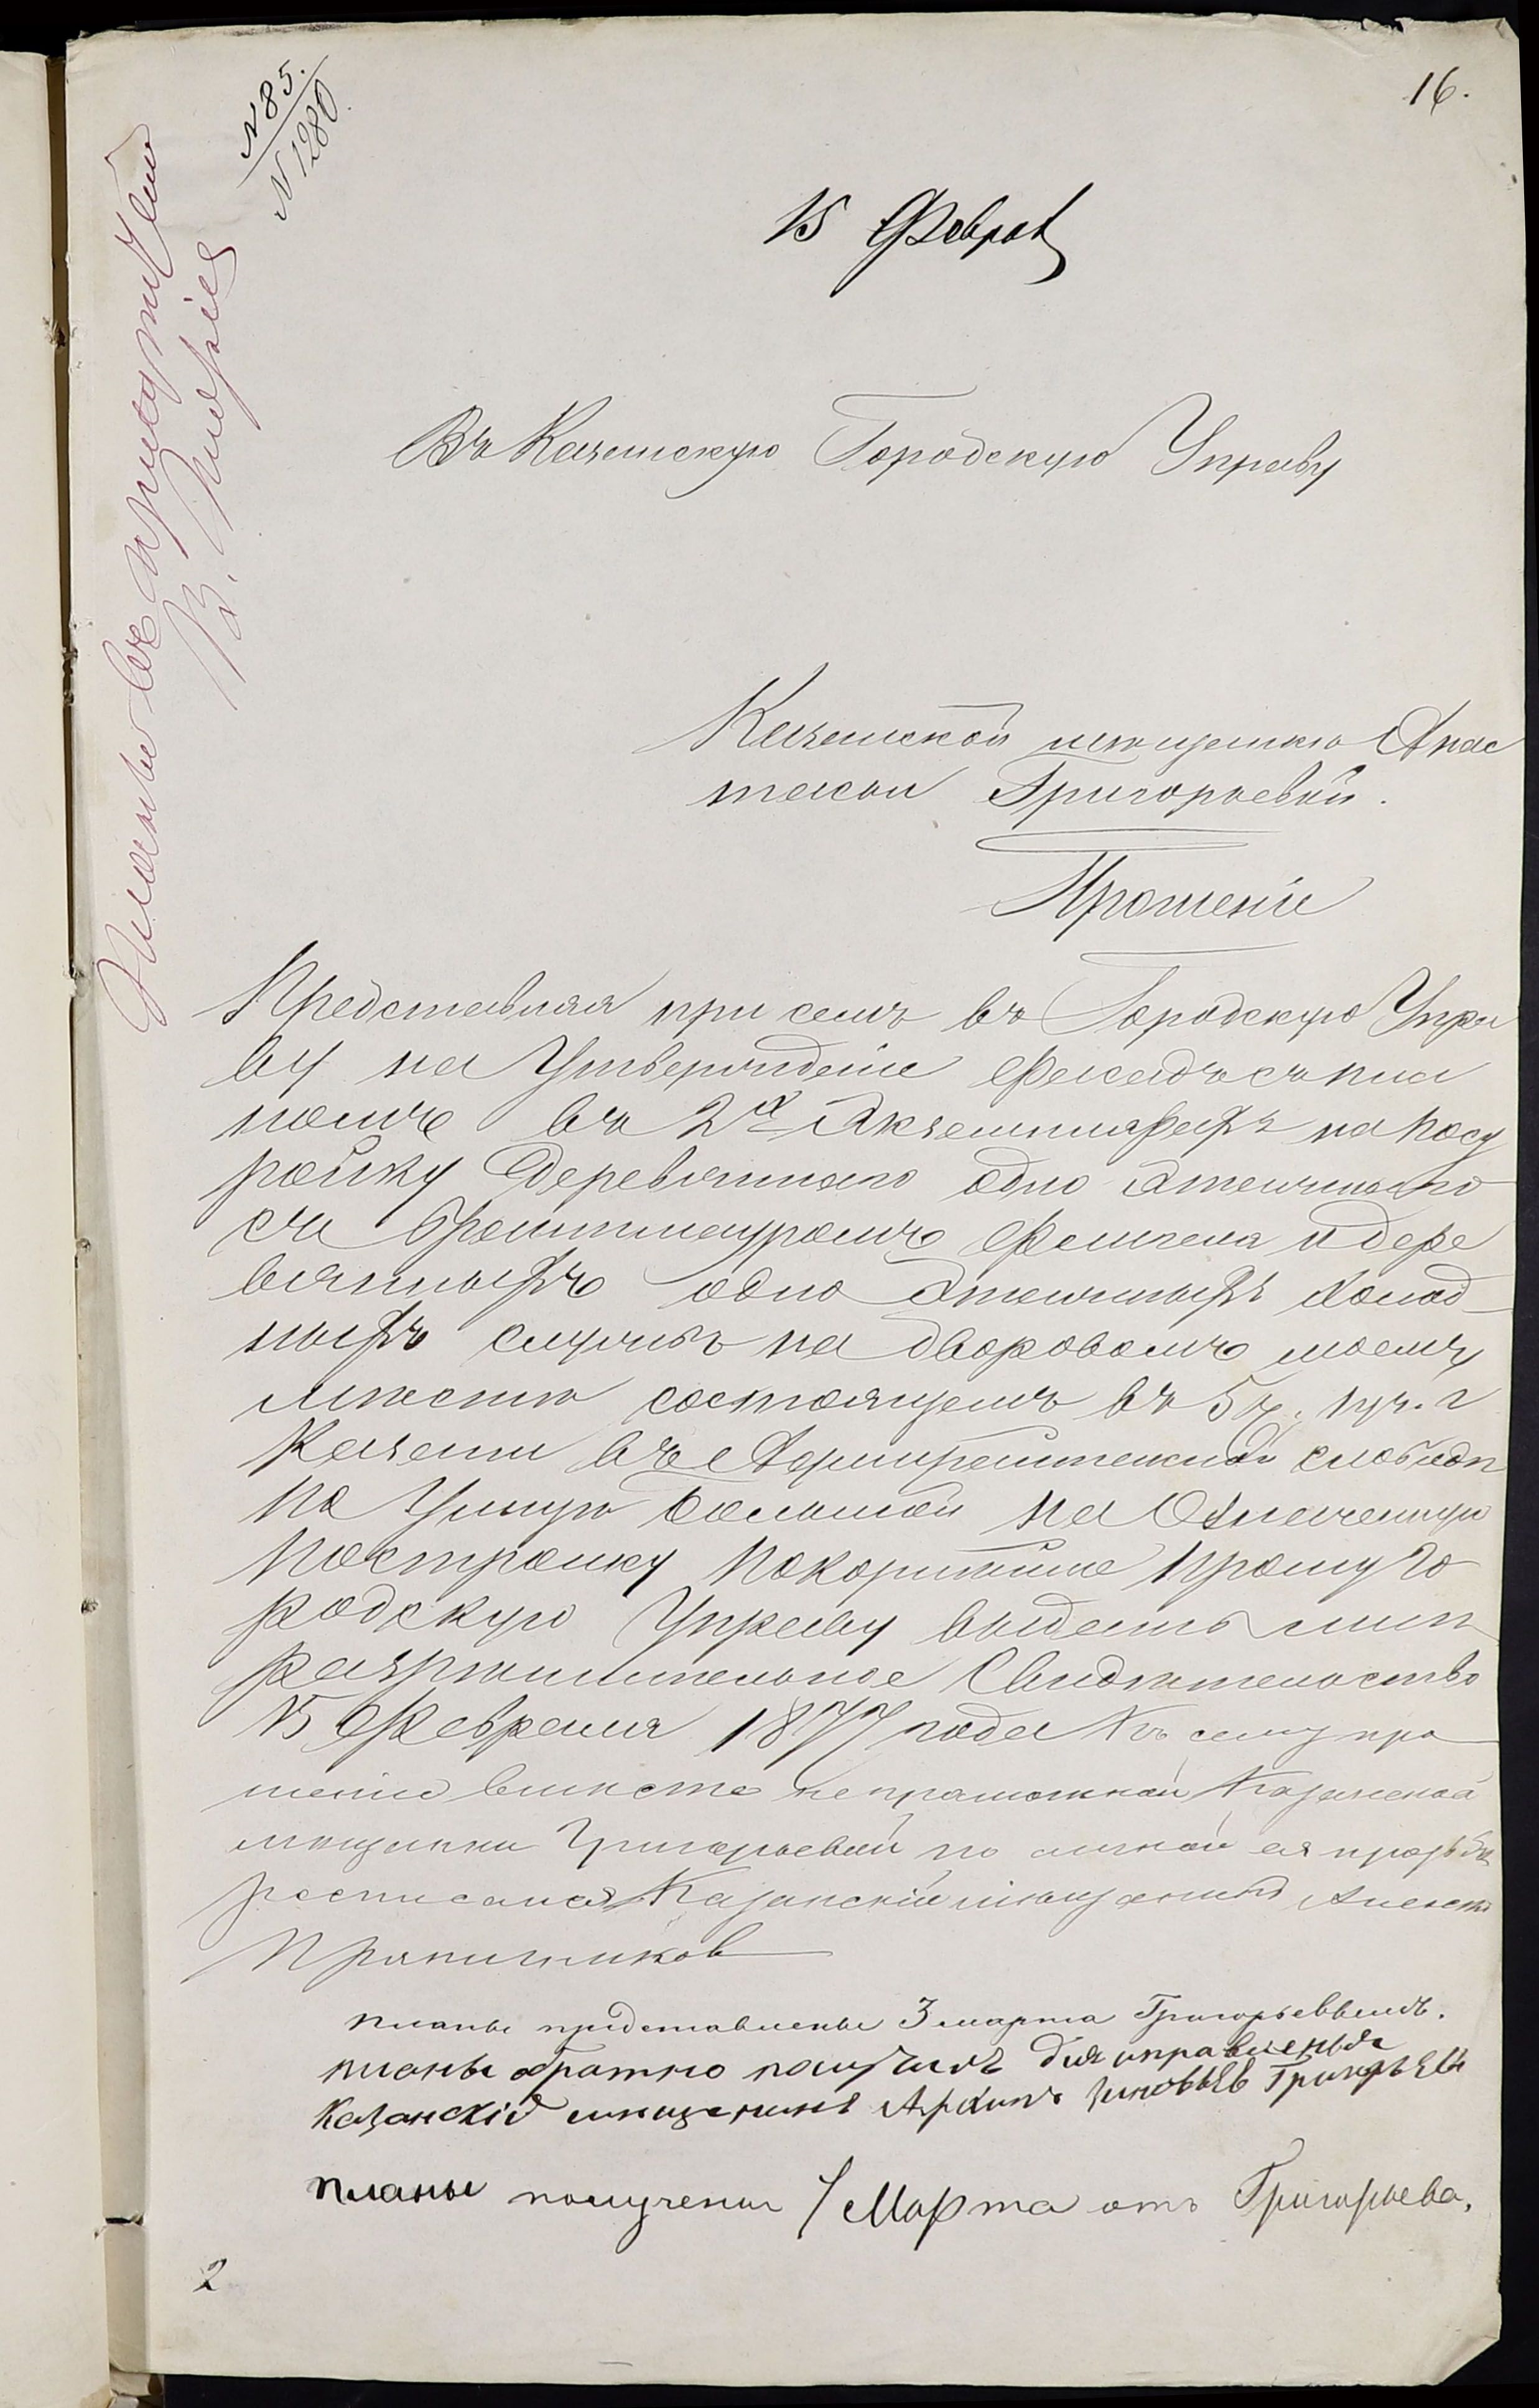 16.
N 85.
N 1280
15 Феврал
Въ Казанскую Городскую Управу
Казанской мѣщанки Анас
тасьи Григорьевой.
Прошеніе
Представляя при семъ въ Городскую Упра
ву на Утвержденіе фасадъ съ пла
номъ въ 2х Экземплярахъ на пост
ройку Деревяннаго одно этажнаго
съ брантмауромъ флигеля и дере
вянныхъ одно этажныхъ холод
ныхъ службъ на дворовомъ моемъ
мѣстѣ состоящемъ въ 5 ч. г
Казани въ Адмиралтейской слободѣ
по Улицѣ Большой на Означенную
Постройку Покорнѣйше прошу Го
родскую Управу выдать мнѣ
разрѣшительное Свидѣтельство
15 Февраля 1877 года Къ сему про
шенію вмѣсто неграмотной Казанской
мѣщанки Григорьевой по личной ея прозьбѣ
росписался Казанскій мѣщанинъ Алексѣй
Пряничников
планы представлены 3 марта Григорьевымъ.
планы обратно получилъ для исправленья
Казанскій мещенинъ Архипъ Зиновьев Григорьев
Планы получены 7 Марта отъ Григорьева.
2